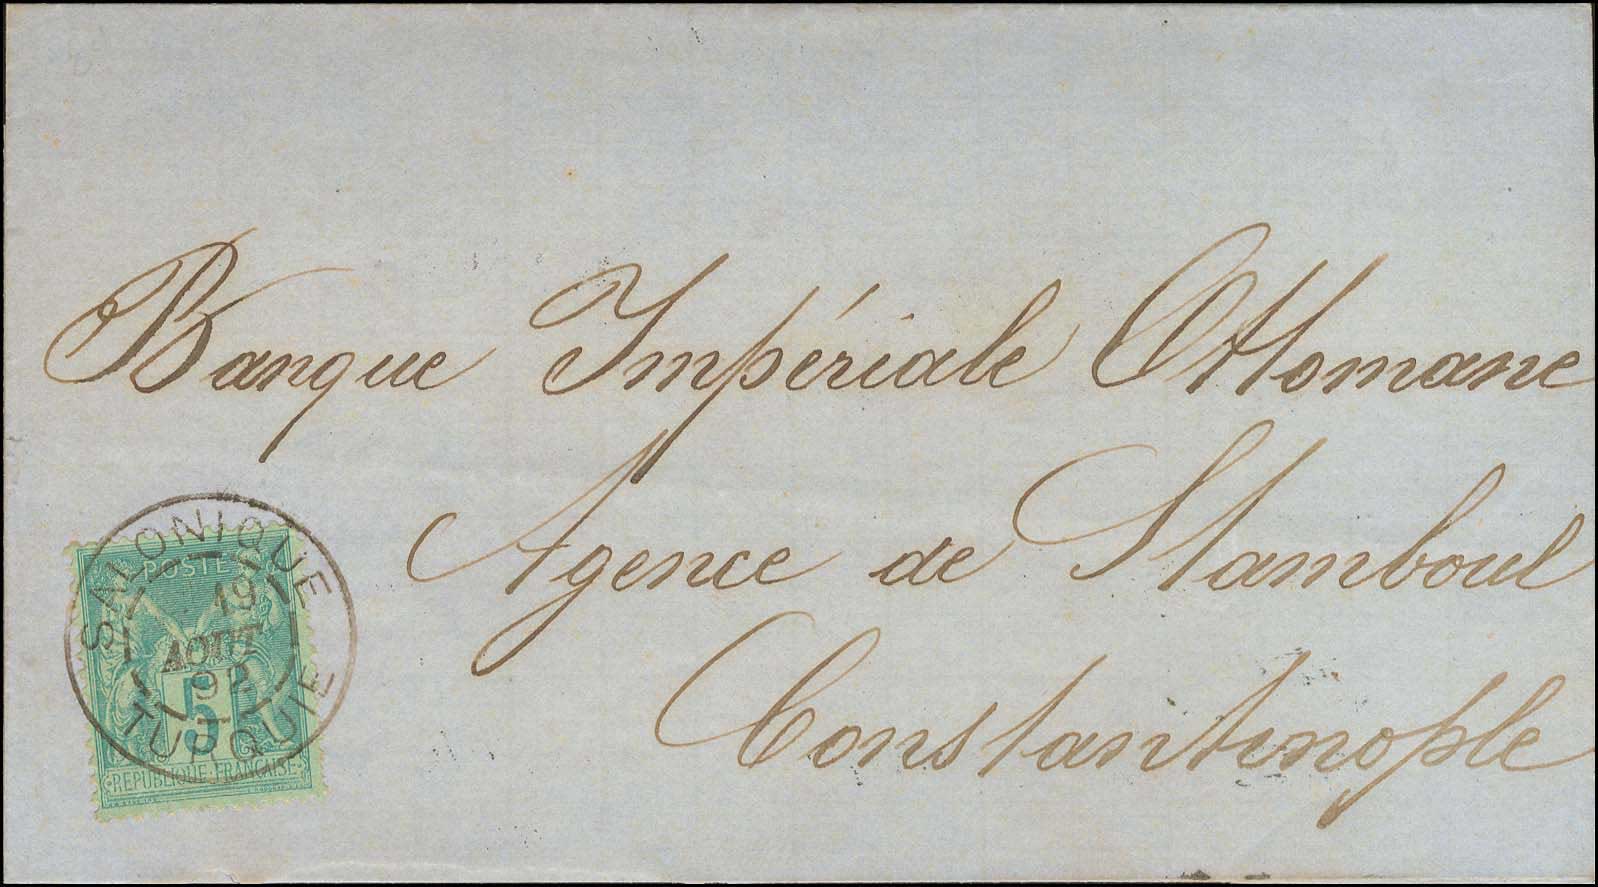 Banque Impériale Ottomane
Agence de Stamboul
Constantinople
SALONIQUE
POSTE
19
AOUT
92
5
TURQUIE
REPUBLIQUE FRANÇAISE